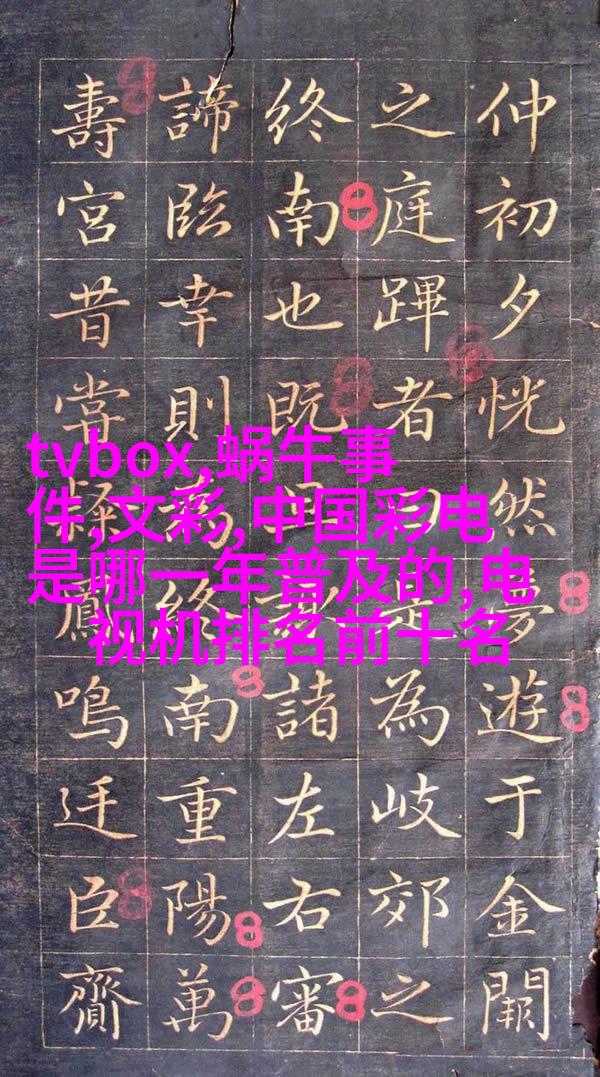 tvbox,蜗牛事
件,文彩,中国彩电
是哪一年普及的,电
视机排名前十名
仲初夕恍然夢遊于金闕
之庭蹕者曰是為岐郊之
終南也既諸左右審
諦臨幸則為終南重陽萬
壽宮昔常鳳鳴迁臣齎